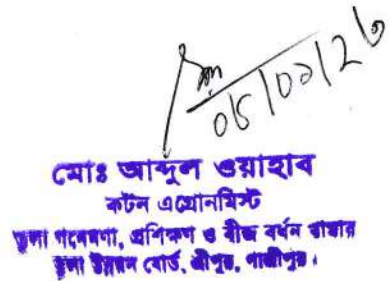 ০৫/০১/২৬
মোঃ আব্দুল ওয়াহাব
কটন এগ্রোনমিস্ট
তুলা গবেষণা, প্রশিক্ষণ ও বীজ বর্ধন খামার
তুলা উন্নয়ন বোর্ড, শ্রীপুর, গাজীপুর।